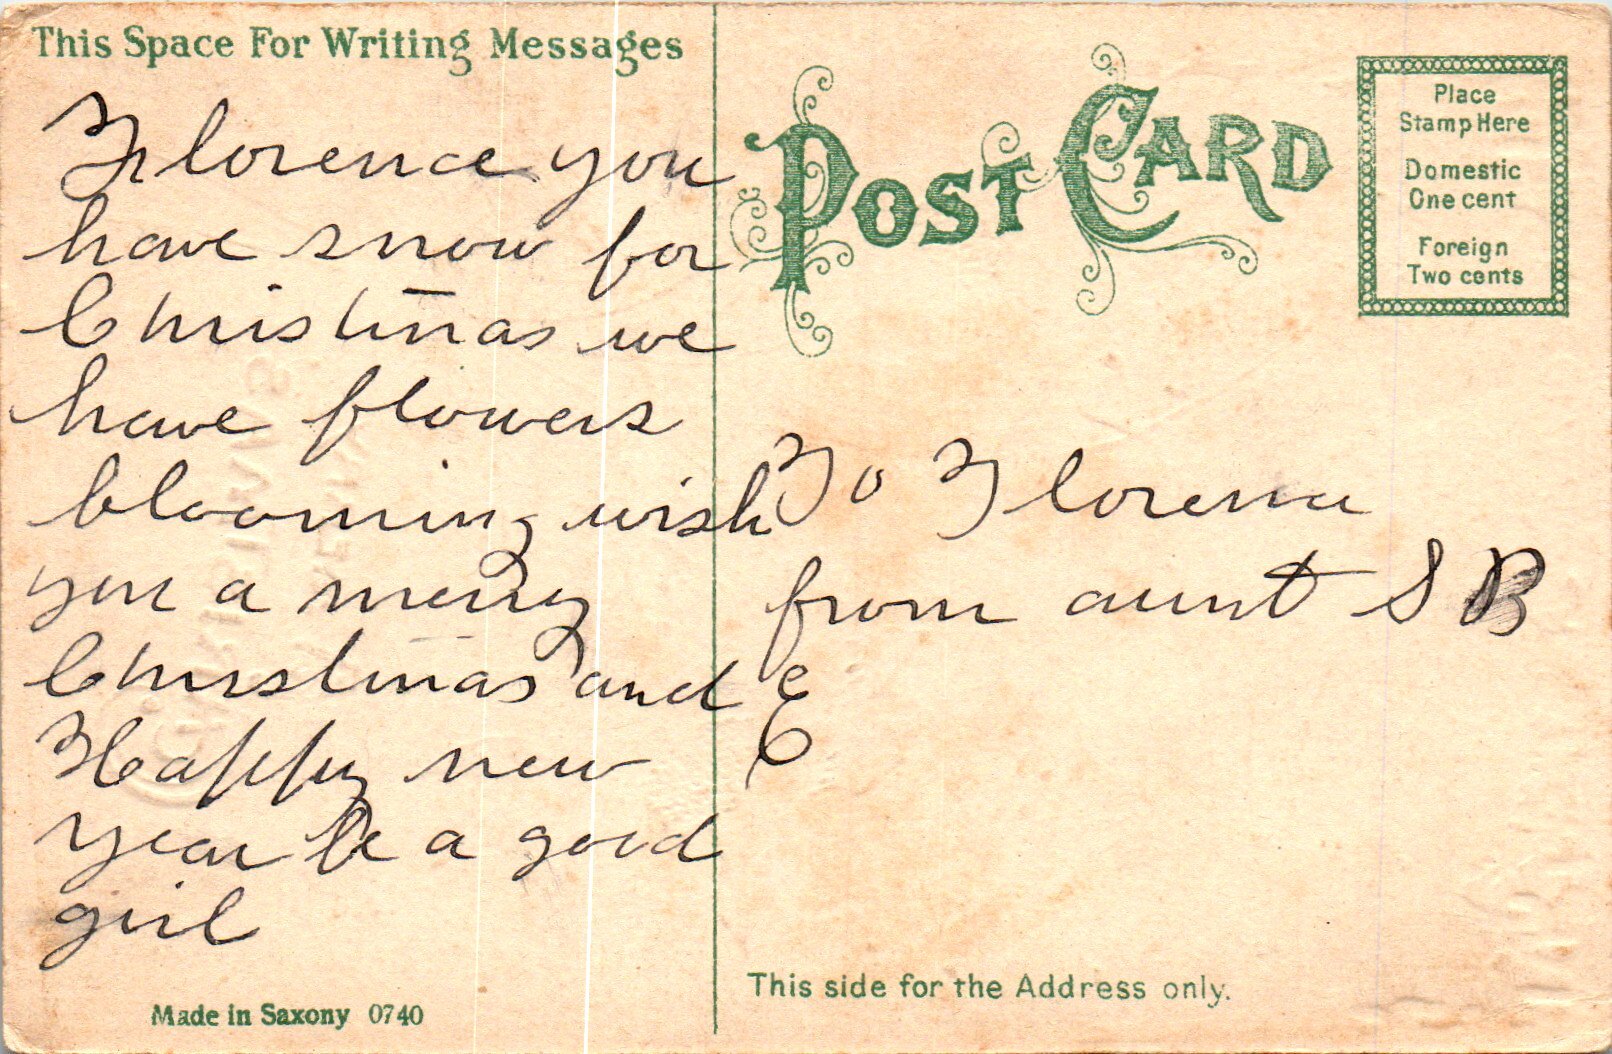 This Space For Writing Messages
Florence you
have snow for
Christmas we
have flowers
blooming wish
you a merry
Christmas and
Happy new
year be a good
girl
Made in Saxony 0740
POST CARD
Place
Stamp Here
Domestic
One cent
Foreign
Two cents
To Florence
from aunt S B
This side for the Address only.